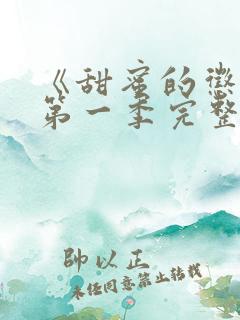 《甜蜜的懲
第一季完整
帥以正
未经同意禁止转载